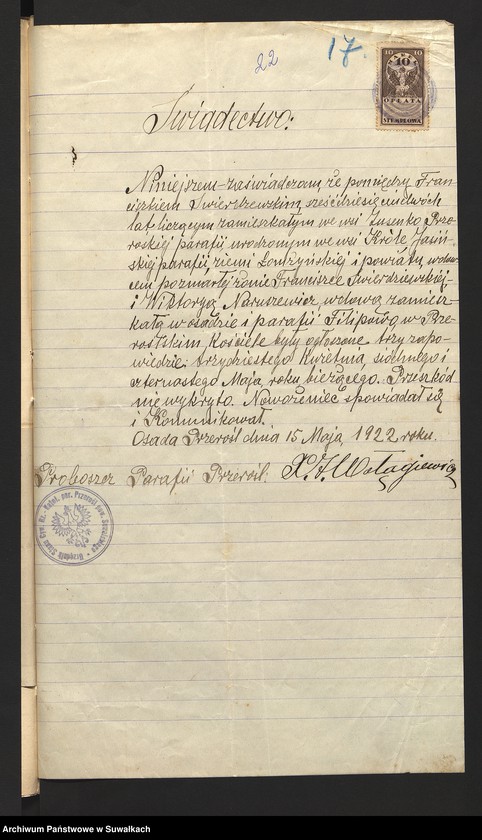 22
17.
10 10
10
OPŁATA
STEMPLOWA
Świadectwo:
Niniejszem zaświadczam, że pomiędzy Fran-
ciszkiem Świerdzewskim sześćdziesięciu dwóch
lat liczącym zamieszkałym we wsi Zusenko Prze-
roskiej parafii urodzonym we wsi Króle Jasiń-
skiej parafii, ziemi Łomżyńskiej i powiatu, wdow-
cem po zmarłej żonie Franciszce Świerdziewskiej-
i Wiktoryą Naruszewicz, wdową zamiesz-
kałą w osadzie i parafii Filipowa, w Prze-
roślskim, Kościele były ogłoszone trzy zapo-
wiedzie: trzydziestego Kwietnia, siódmego i
czternastego Maja, roku bieżącego. Przeszkód
nie wykryto. Nowożeniec spowiadał się
i Kommunikował.
Osada Przerośl dnia 15 Maja 1922 roku.
Proboszcz Parafii Przerośl: X. J.
Archiwum Państwowe w Suwałkach